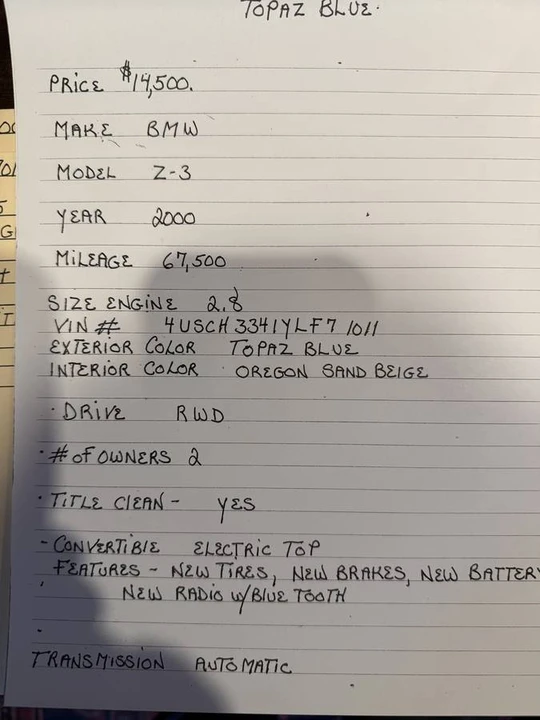 TOPAZ BLUE.
PRICE $14,500.
MAKE BMW
MODEL Z-3
YEAR 2000
MILEAGE 67,500
SIZE ENGINE 2.8
VIN # 4USCH3341YLF71011
EXTERIOR COLOR TOPAZ BLUE
INTERIOR COLOR OREGON SAND BEIGE
· DRIVE RWD
· # OF OWNERS 2
· TITLE CLEAN - YES
- CONVERTIBLE ELECTRIC TOP
FEATURES - NEW TIRES, NEW BRAKES, NEW BATTERY
NEW RADIO W/BLUE TOOTH
TRANSMISSION AUTOMATIC